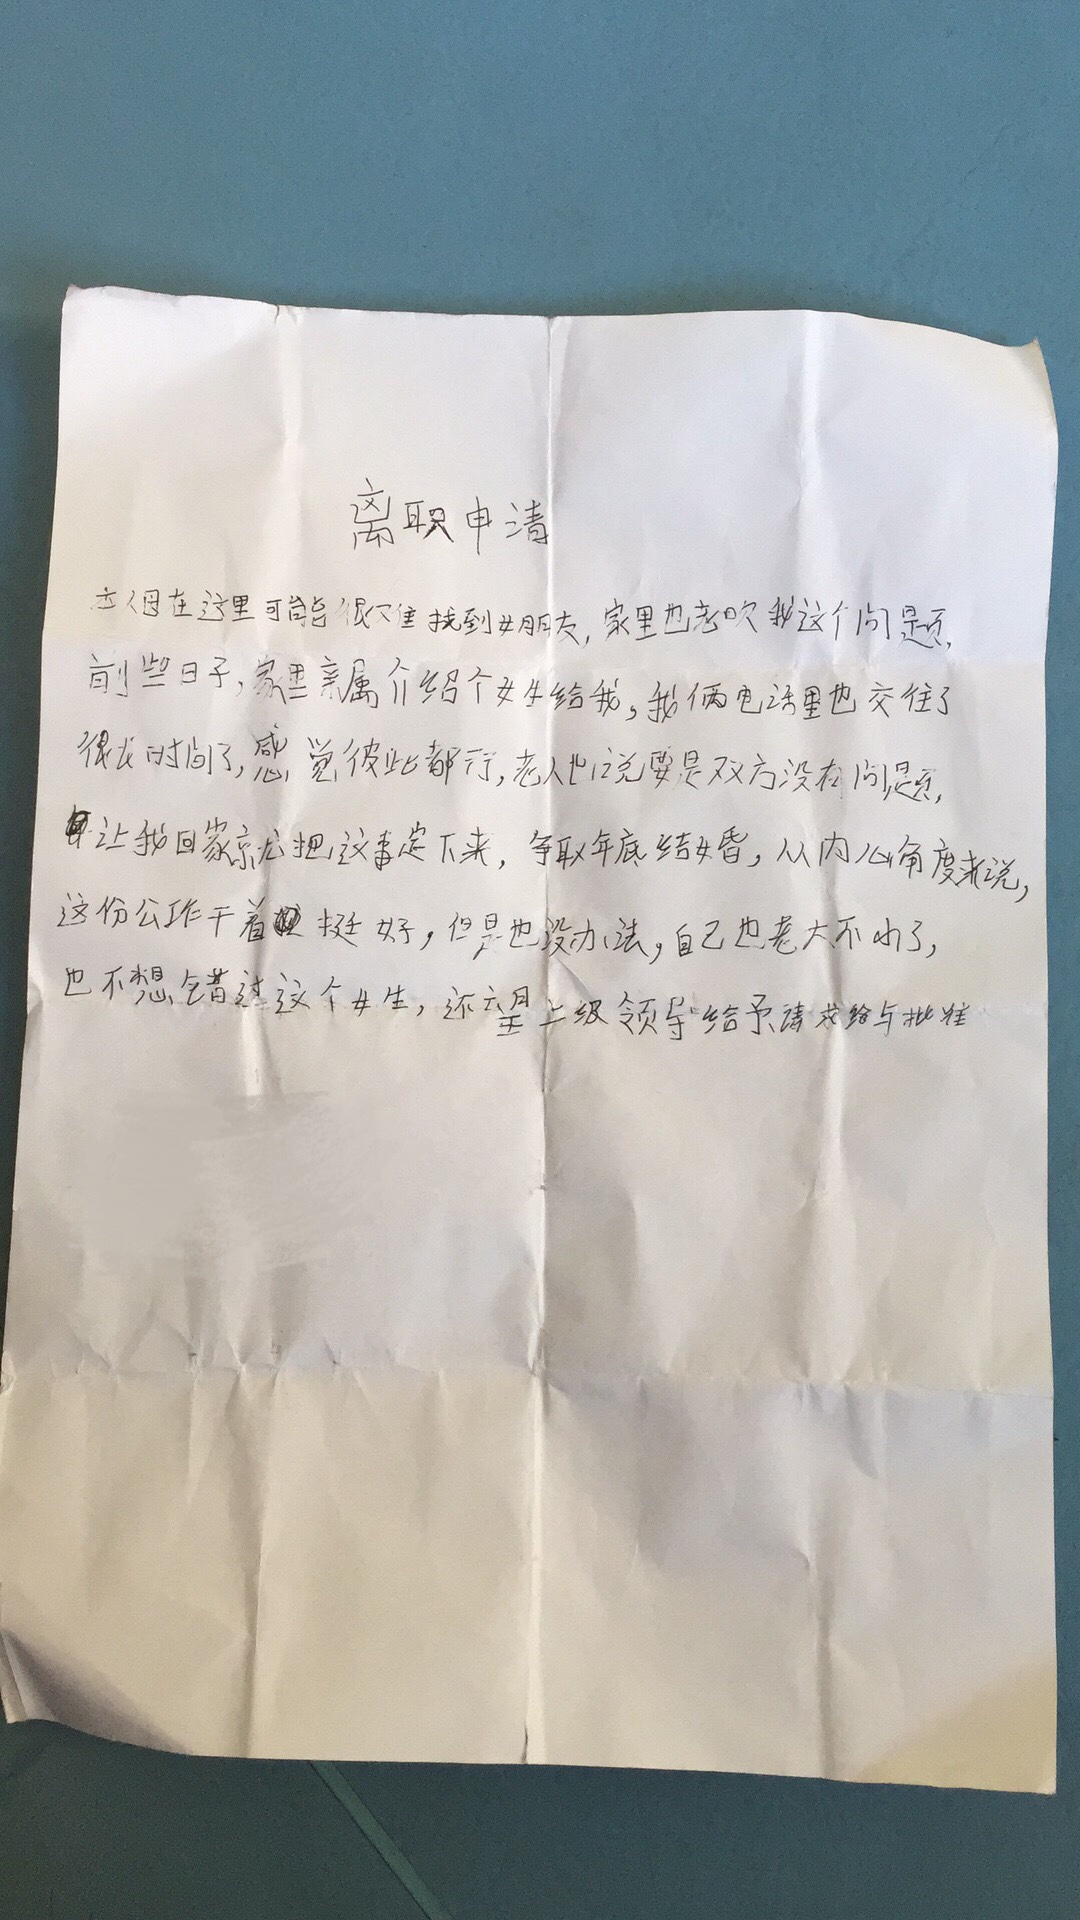 离职申请
在这里可能很难找到女朋友，家里也老吹我这个问题，
前些日子，家里亲属介绍个女生给我，我俩电话里也交往了
很长时间了，感觉彼此都行，老人也说要是双方没有问题，
让我回家就把这事定下来，争取年底结婚，从内心角度来说，
这份工作干着挺好，但是也没办法，自己也老大不小了，
也不想错过这个女生，还望上级领导给予请求给与批准